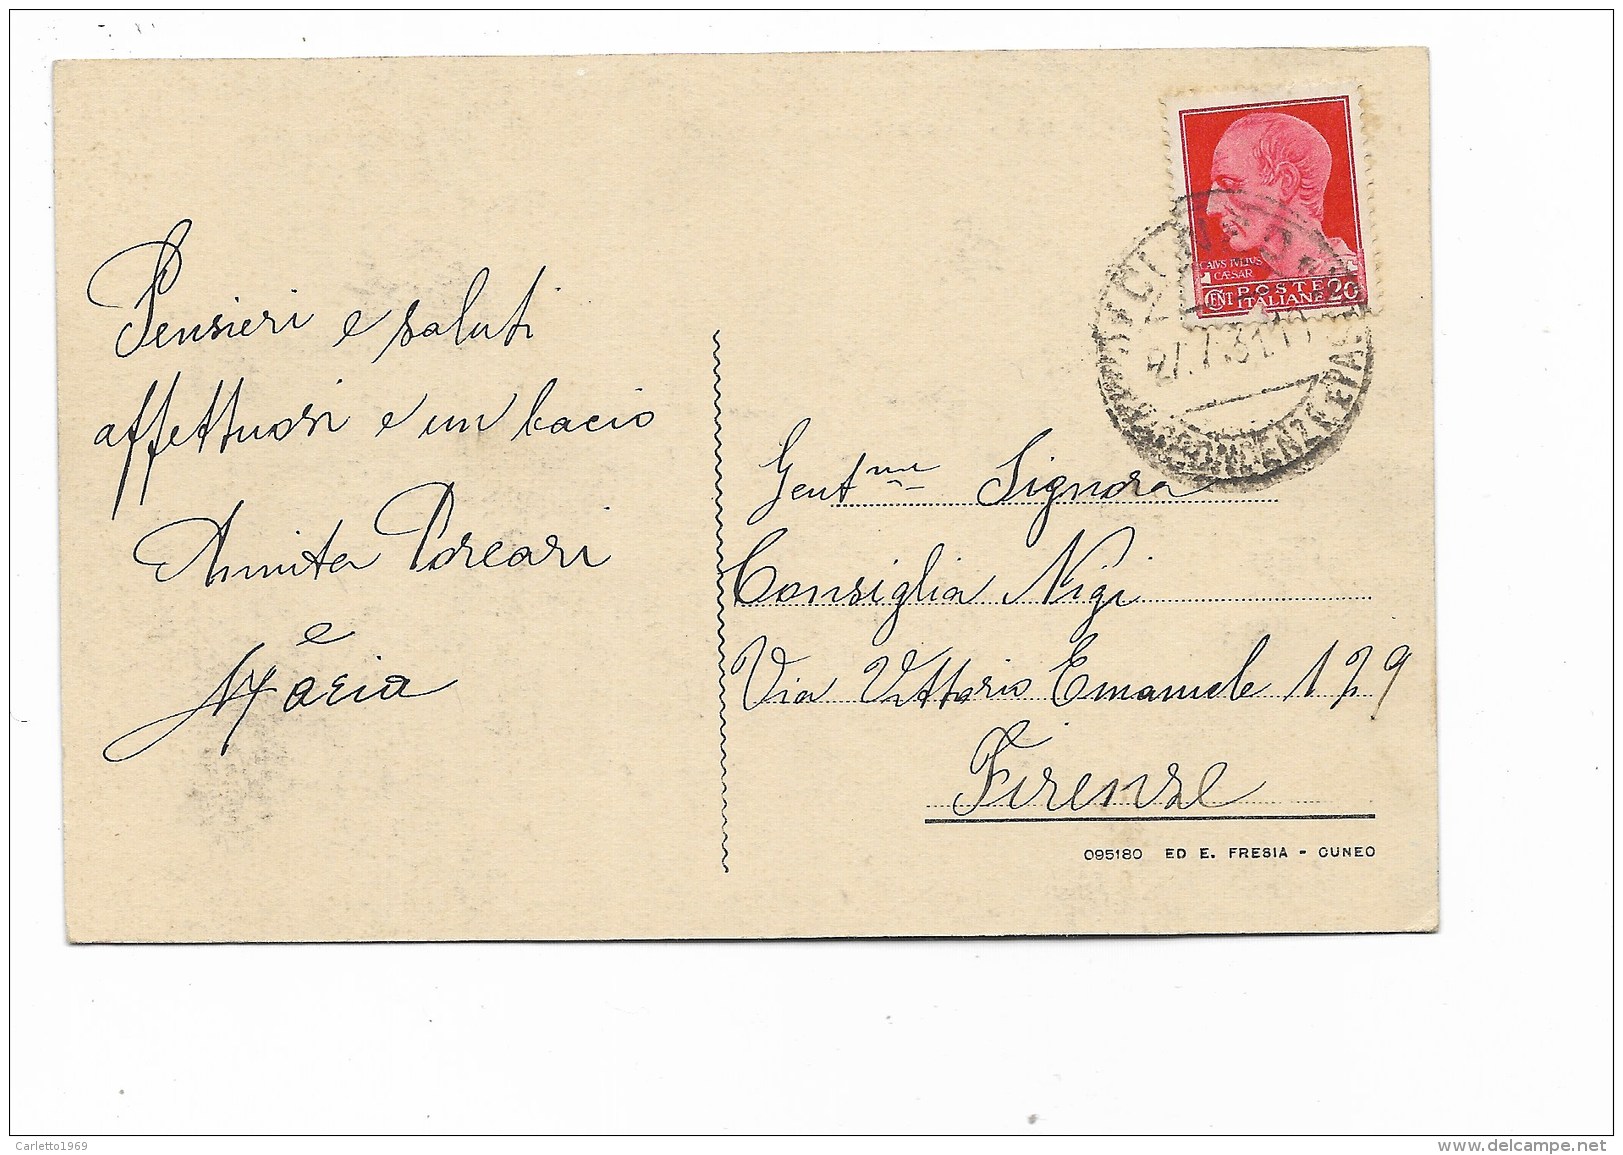 Pensieri e saluti
affettuosi e un bacio
Annita Porcari
e
Maria
CAIVS IVLIVS
CÆSAR
CENT POSTE 20
ITALIANE
27.7.31.11
Gent.me Signora
Consiglia Nigi
Via Vittorio Emanuele 129
Firenze
095180 ED E. FRESIA - CUNEO
Carletto1969
www.delcampe.net